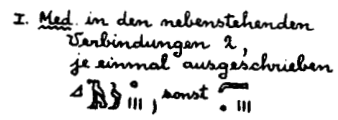 I. Med. in den nebenstehenden
Verbindungen 2,
je einmal ausgeschrieben
, sonst